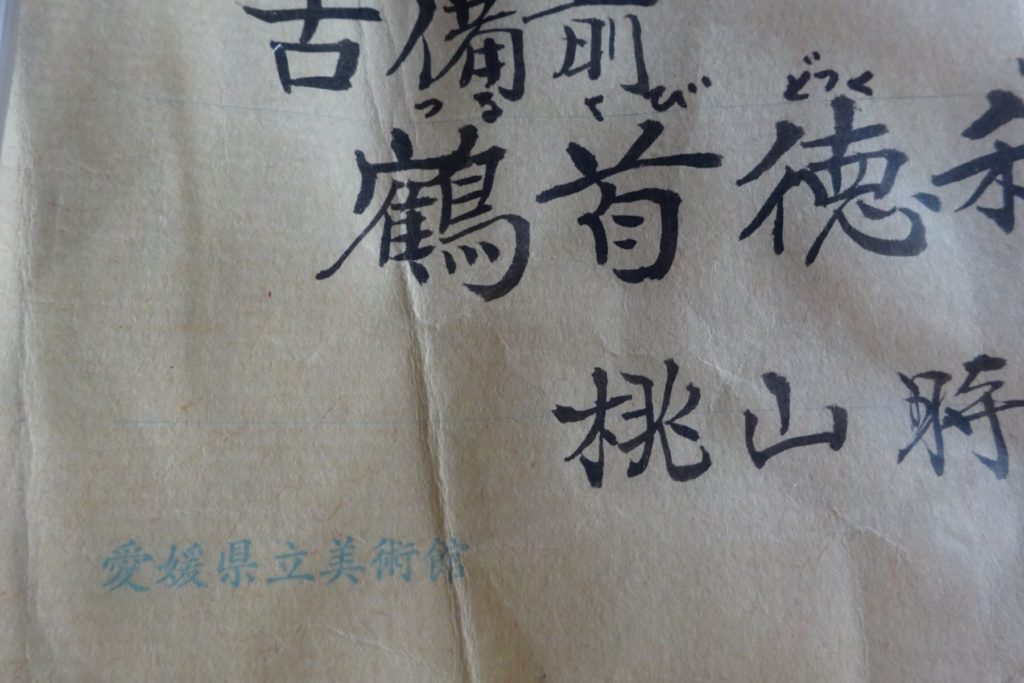 古備前
つる さび どつく
鶴首徳利
桃山時
愛媛県立美術館